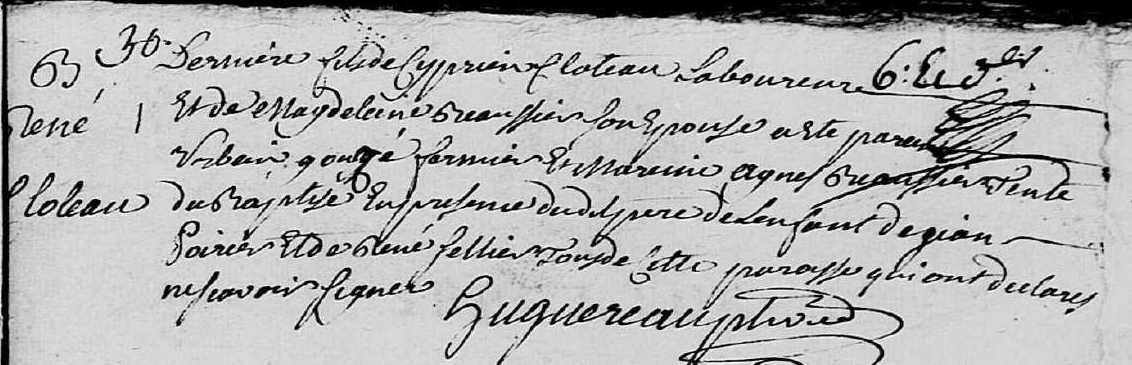 B 30 Derniere fils de Cyprien Cloteau Laboureur
René 1 Et de Magdeleine Beaussier Son Epouse a Ete parein
Urbain gougé fermier Et Mareine Agnes Beaussier Tente
Cloteau du Baptisé En presence dudit pere de Lenfant de
Poirier Et de René fellier Tous de Cette paroisse qui ont declares
ne scavoir signer
Huguereau